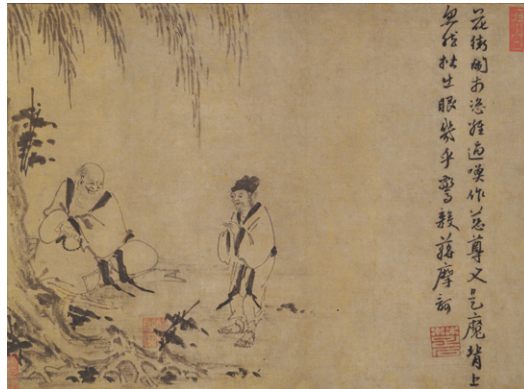 花街鬧市恣經過喚作慈尊又是魔背上
忽然揩隻眼幾乎驚殺蔣摩訶